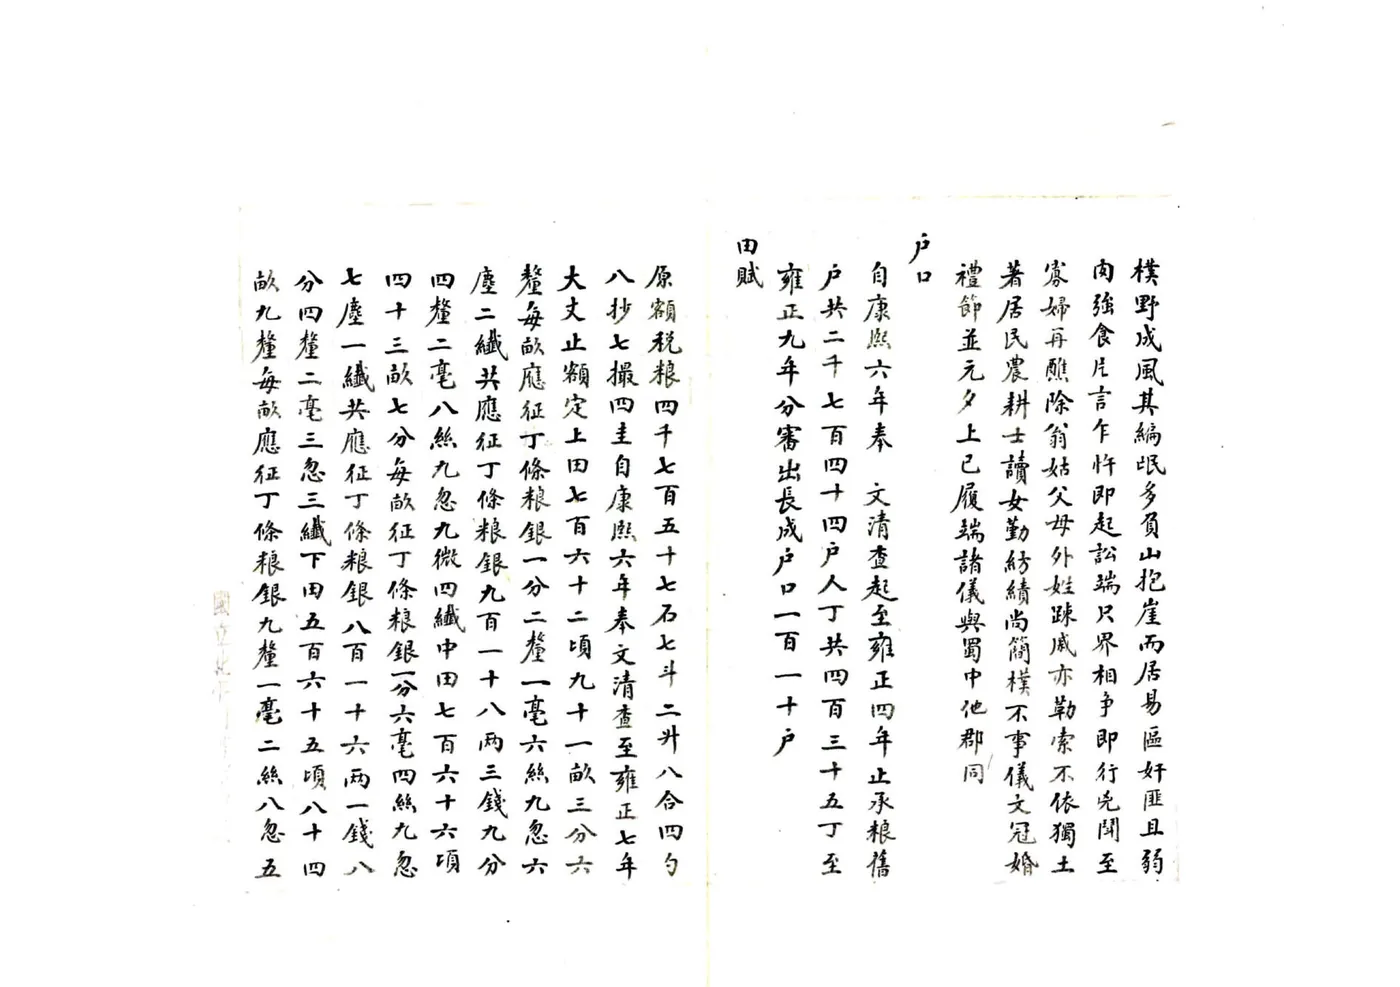 樸野成風其編氓多負山抱崖而居易區奸匪且弱
肉強食片言乍忤即起訟端只界相争即行兇鬭至
寡婦再醮除翁姑父母外姓踈戚亦勒索不依獨土
著居民農耕士讀女勤紡績尚簡樸不事儀文冠婚
禮節並元夕上巳履端諸儀與蜀中他郡同
户口
自康熙六年奉　文清查起至雍正四年止承粮舊
户共二千七百四十四户人丁共四百三十五丁至
雍正九年分審出長成户口一百一十户
田賦
原額税粮四千七百五十七石七斗二升八合四勺
八抄七撮四圭自康熙六年奉文清查至雍正七年
大丈止額定上田七百六十二頃九十一畝三分六
釐每畝應征丁條粮銀一分二釐一毫六絲九忽六
塵二纖共應征丁條粮銀九百一十八两三錢九分
四釐二毫八絲九忽九微四纖中田七百六十六頃
四十三畝七分每畝征丁條粮銀一分六毫四絲九忽
七塵一纖共應征丁條粮銀八百一十六两一錢八
分四釐二毫三忽三纖下田五百六十五頃八十四
畝九釐每畝應征丁條粮銀九釐一毫二絲八忽五
國立北平